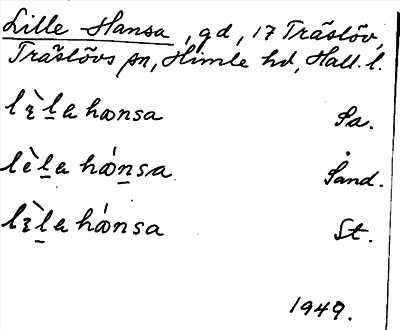 Lille Hansa, gd, 17 Träslöv,
Träslövs sn, Himle hd, Hall. l.
lɛ̀la hansa Sa.
lèla hánsa Sand.
lɛ̀la hánsa St.
1949.